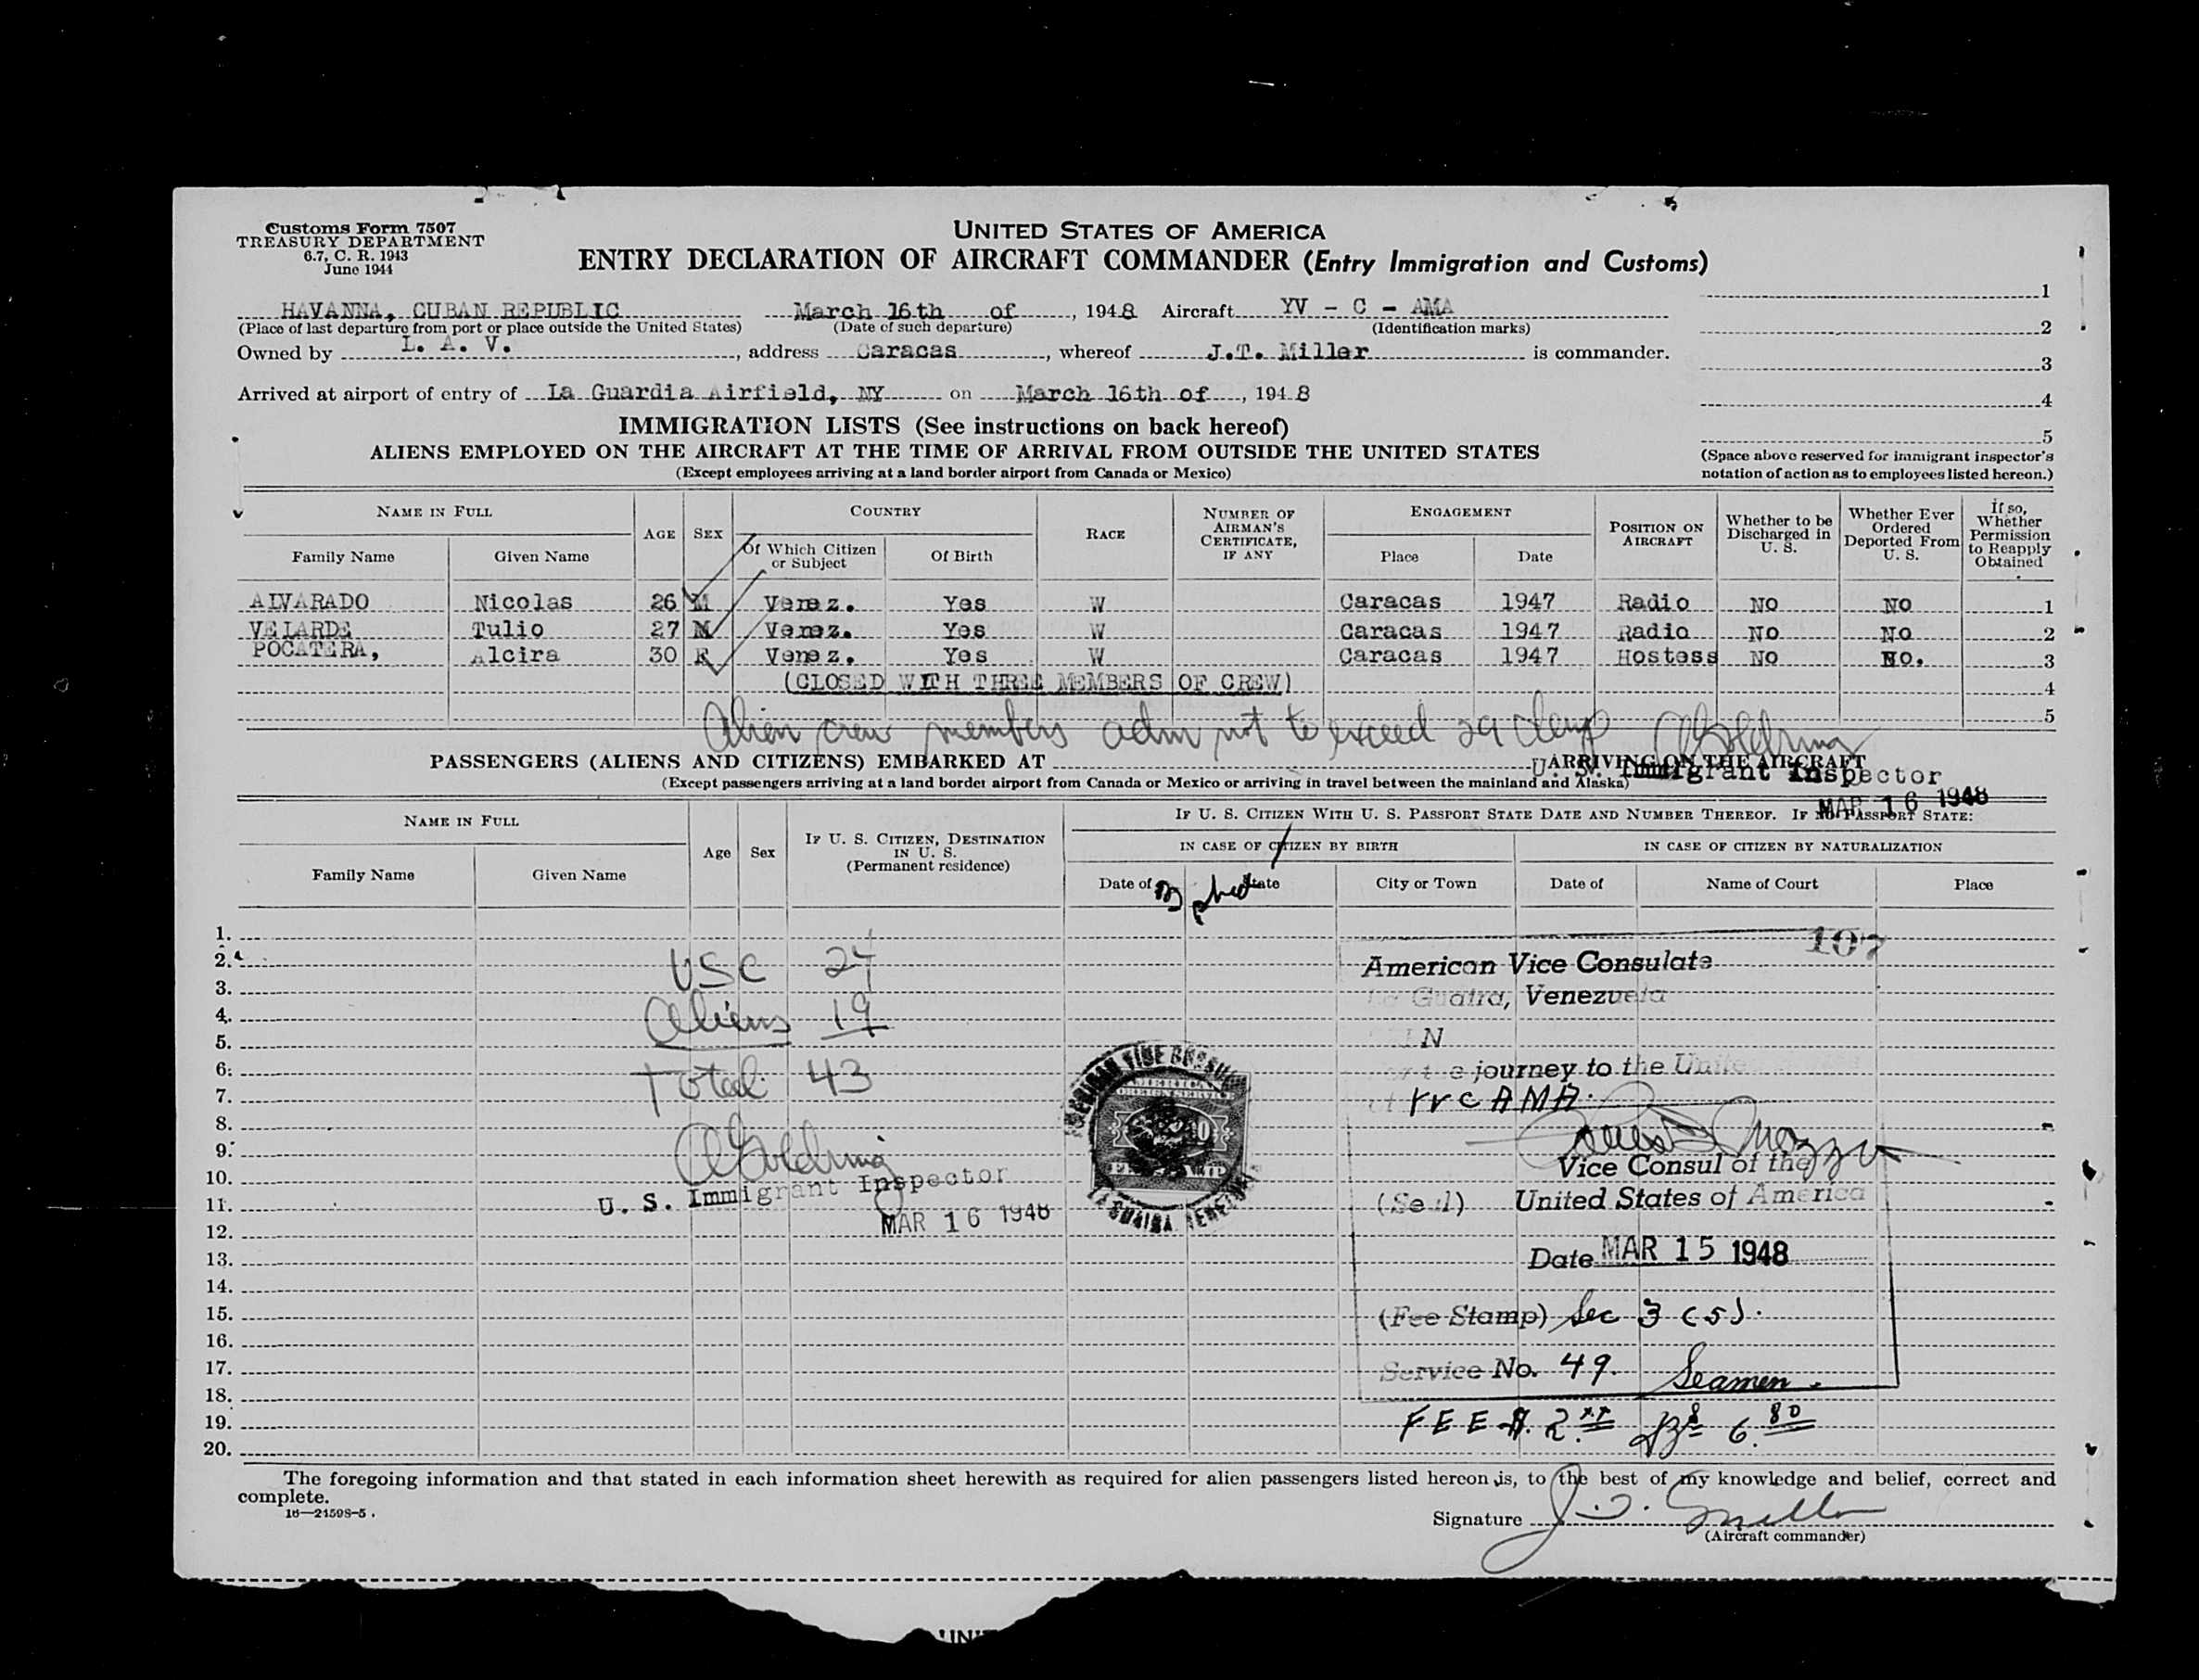 Customs Form 7507
TREASURY DEPARTMENT
6.7, C. R. 1943
June 1944
UNITED STATES OF AMERICA
ENTRY DECLARATION OF AIRCRAFT COMMANDER (Entry Immigration and Customs)
HAVANNA, CUBAN REPUBLIC March 16th of, 1948 Aircraft YV - C - AMA
(Place of last departure from port or place outside the United States) (Date of such departure) (Identification marks)
Owned by L. A. V., address Caracas, whereof J.T. Miller is commander.
Arrived at airport of entry of La Guardia Airfield, NY on March 16th of, 1948
1
2
3
4
5
(Space above reserved for immigrant inspector's
notation of action as to employees listed hereon.)
IMMIGRATION LISTS (See instructions on back hereof)
ALIENS EMPLOYED ON THE AIRCRAFT AT THE TIME OF ARRIVAL FROM OUTSIDE THE UNITED STATES
(Except employees arriving at a land border airport from Canada or Mexico)
NAME IN FULL
Family Name Given Name
AGE SEX
COUNTRY
Of Which Citizen or Subject Of Birth
RACE
NUMBER OF AIRMAN'S CERTIFICATE, IF ANY
ENGAGEMENT
Place Date
POSITION ON AIRCRAFT
Whether to be Discharged in U. S.
Whether Ever Ordered Deported From U. S.
If so, Whether Permission to Reapply Obtained
ALVARADO Nicolas 26 M Venez. Yes W Caracas 1947 Radio NO NO 1
VELARDE Tulio 27 M Venez. Yes W Caracas 1947 Radio No No 2
POCATERA, Alcira 30 F Venez. Yes W Caracas 1947 Hostess No No. 3
(CLOSED WITH THREE MEMBERS OF CREW) 4
5
Alien crew members adm not to exceed 29 days AGoldring
PASSENGERS (ALIENS AND CITIZENS) EMBARKED AT ARRIVING ON THE AIRCRAFT
U. S. Immigrant Inspector
(Except passengers arriving at a land border airport from Canada or Mexico or arriving in travel between the mainland and Alaska)
MAR 16 1948
NAME IN FULL
Family Name Given Name
Age Sex
IF U. S. CITIZEN, DESTINATION IN U. S.
(Permanent residence)
IF U. S. CITIZEN WITH U. S. PASSPORT STATE DATE AND NUMBER THEREOF. IF NO PASSPORT STATE:
IN CASE OF CITIZEN BY BIRTH IN CASE OF CITIZEN BY NATURALIZATION
Date of State City or Town Date of Name of Court Place
1.
2.
3.
4.
5.
6.
7.
8.
9.
10.
11.
12.
13.
14.
15.
16.
17.
18.
19.
20.
USC 24
Aliens 19
Total 43
AGoldring
U. S. Immigrant Inspector
MAR 16 1948
AMERICAN VICE CONSULATE
FOREIGN SERVICE
LA GUAIRA VENEZUELA
107
American Vice Consulate
La Guaira, Venezuela
journey to the United
YVC AMA.
Vice Consul of the
(Seal) United States of America
Date MAR 15 1948
(Fee Stamp) Sec 3 (5).
Service No. 49. Seamen.
FEE $ 2.xx Bs 6.80
The foregoing information and that stated in each information sheet herewith as required for alien passengers listed hereon is, to the best of my knowledge and belief, correct and
complete.
16—21598-5
Signature J. T. Miller
(Aircraft commander)